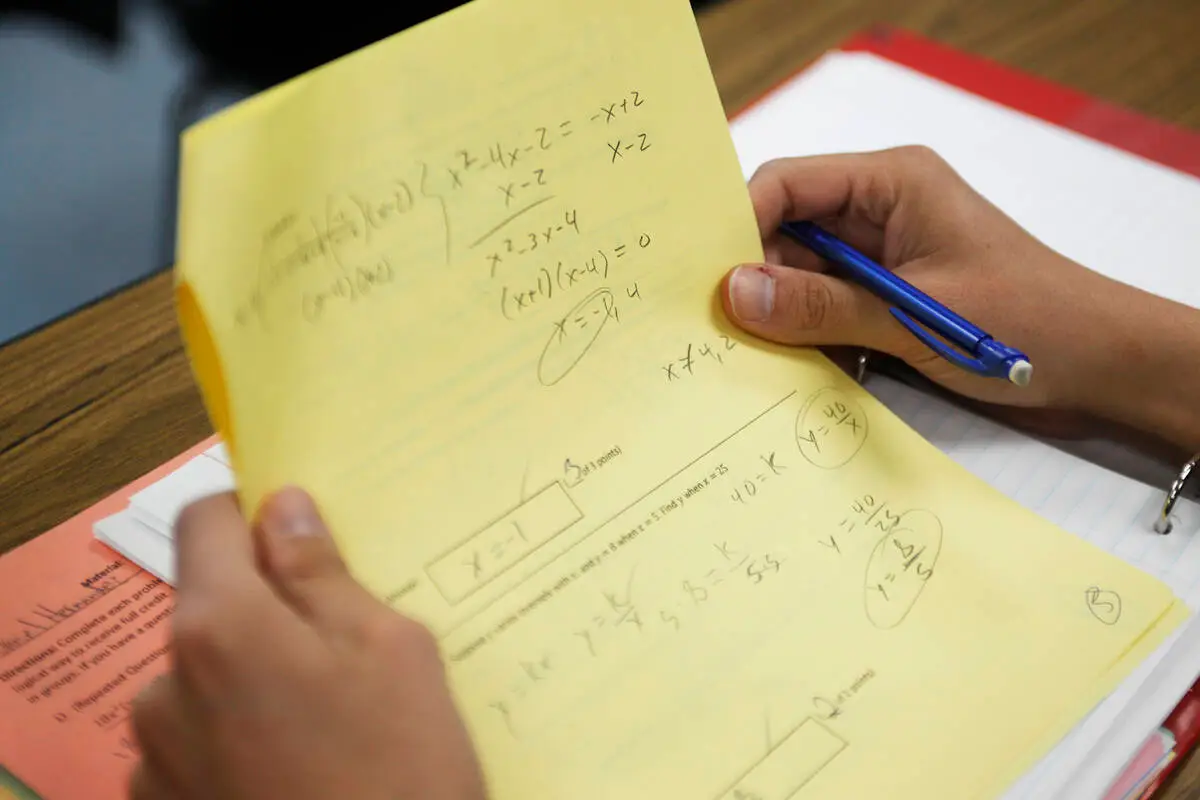 x²-4x-2 = -x+2
x-2 x-2
x²-3x-4
(x+1)(x-4) = 0
x = -1, 4
x ≠ 4, 2
3 of 3 points)
x = -1
Suppose y varies inversely with x, and y = 8 when x = 5. Find y when x = 25
40 = k
y = 40/x
y = kx
y = k/x
5·8 = k/5·5
y = 40/25
y = 8/5
3
2 of 2 points)
Material
Directions: Complete each proble
logical way to receive full credit.
in groups. If you have a questi
1) (Repeated Questio